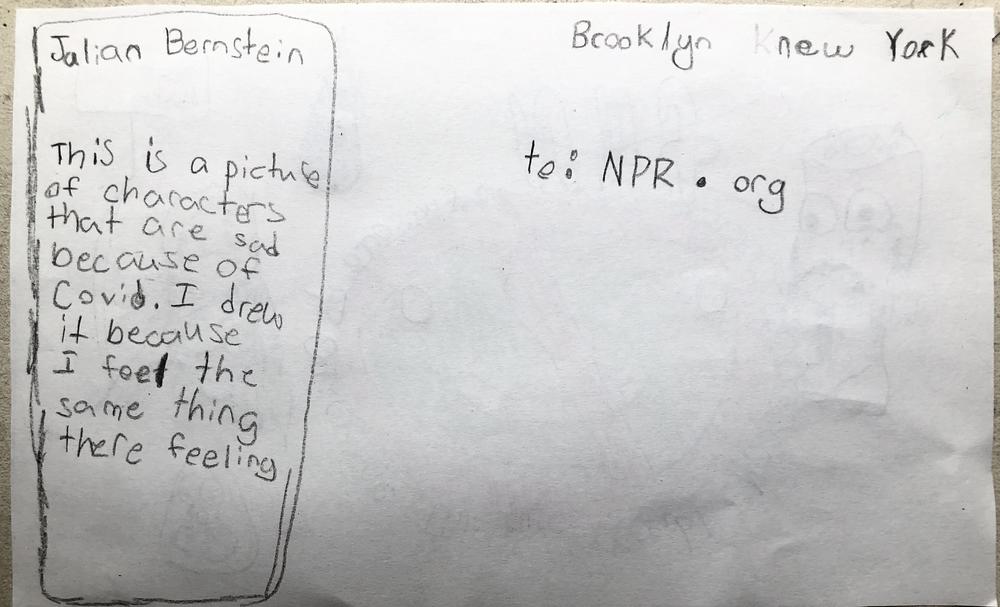 Julian Bernstein
This is a picture
of characters
that are sad
because of
Covid. I drew
it because
I feel the
same thing
there feeling
Brooklyn Knew York
to: NPR. org